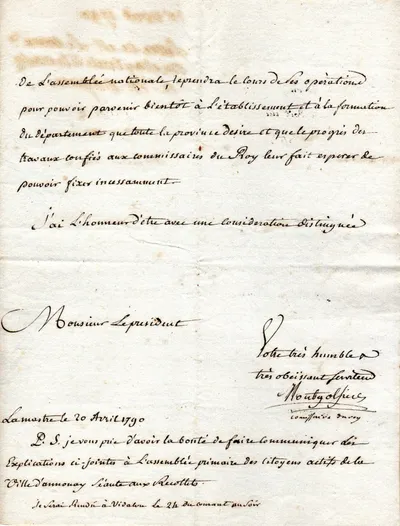 De L'assemblée nationale, reprendra le cours de ses opérations
pour pouvoir parvenir bientôt à L'établissement et à la formation
du département que toute la province desire et que le progrès des
travaux confiés aux commissaires du Roy leur fait esperer de
pouvoir fixer incessamment.
J'ai L'honneur d'être avec une consideration distinguée
Monsieur Le président
Votre très humble &
très obeissant serviteur
Montgolfier
commissaire du roy
Lamastre le 20 Avril 1790
P. S. je vous prie d'avoir la bonté de faire communiquer les
Explications ci-jointes à L'assemblée primaire des citoyens actifs de la
Ville d'annonay séante aux Recollets
Je serai rendu à Vidalon le 24 du courant au soir